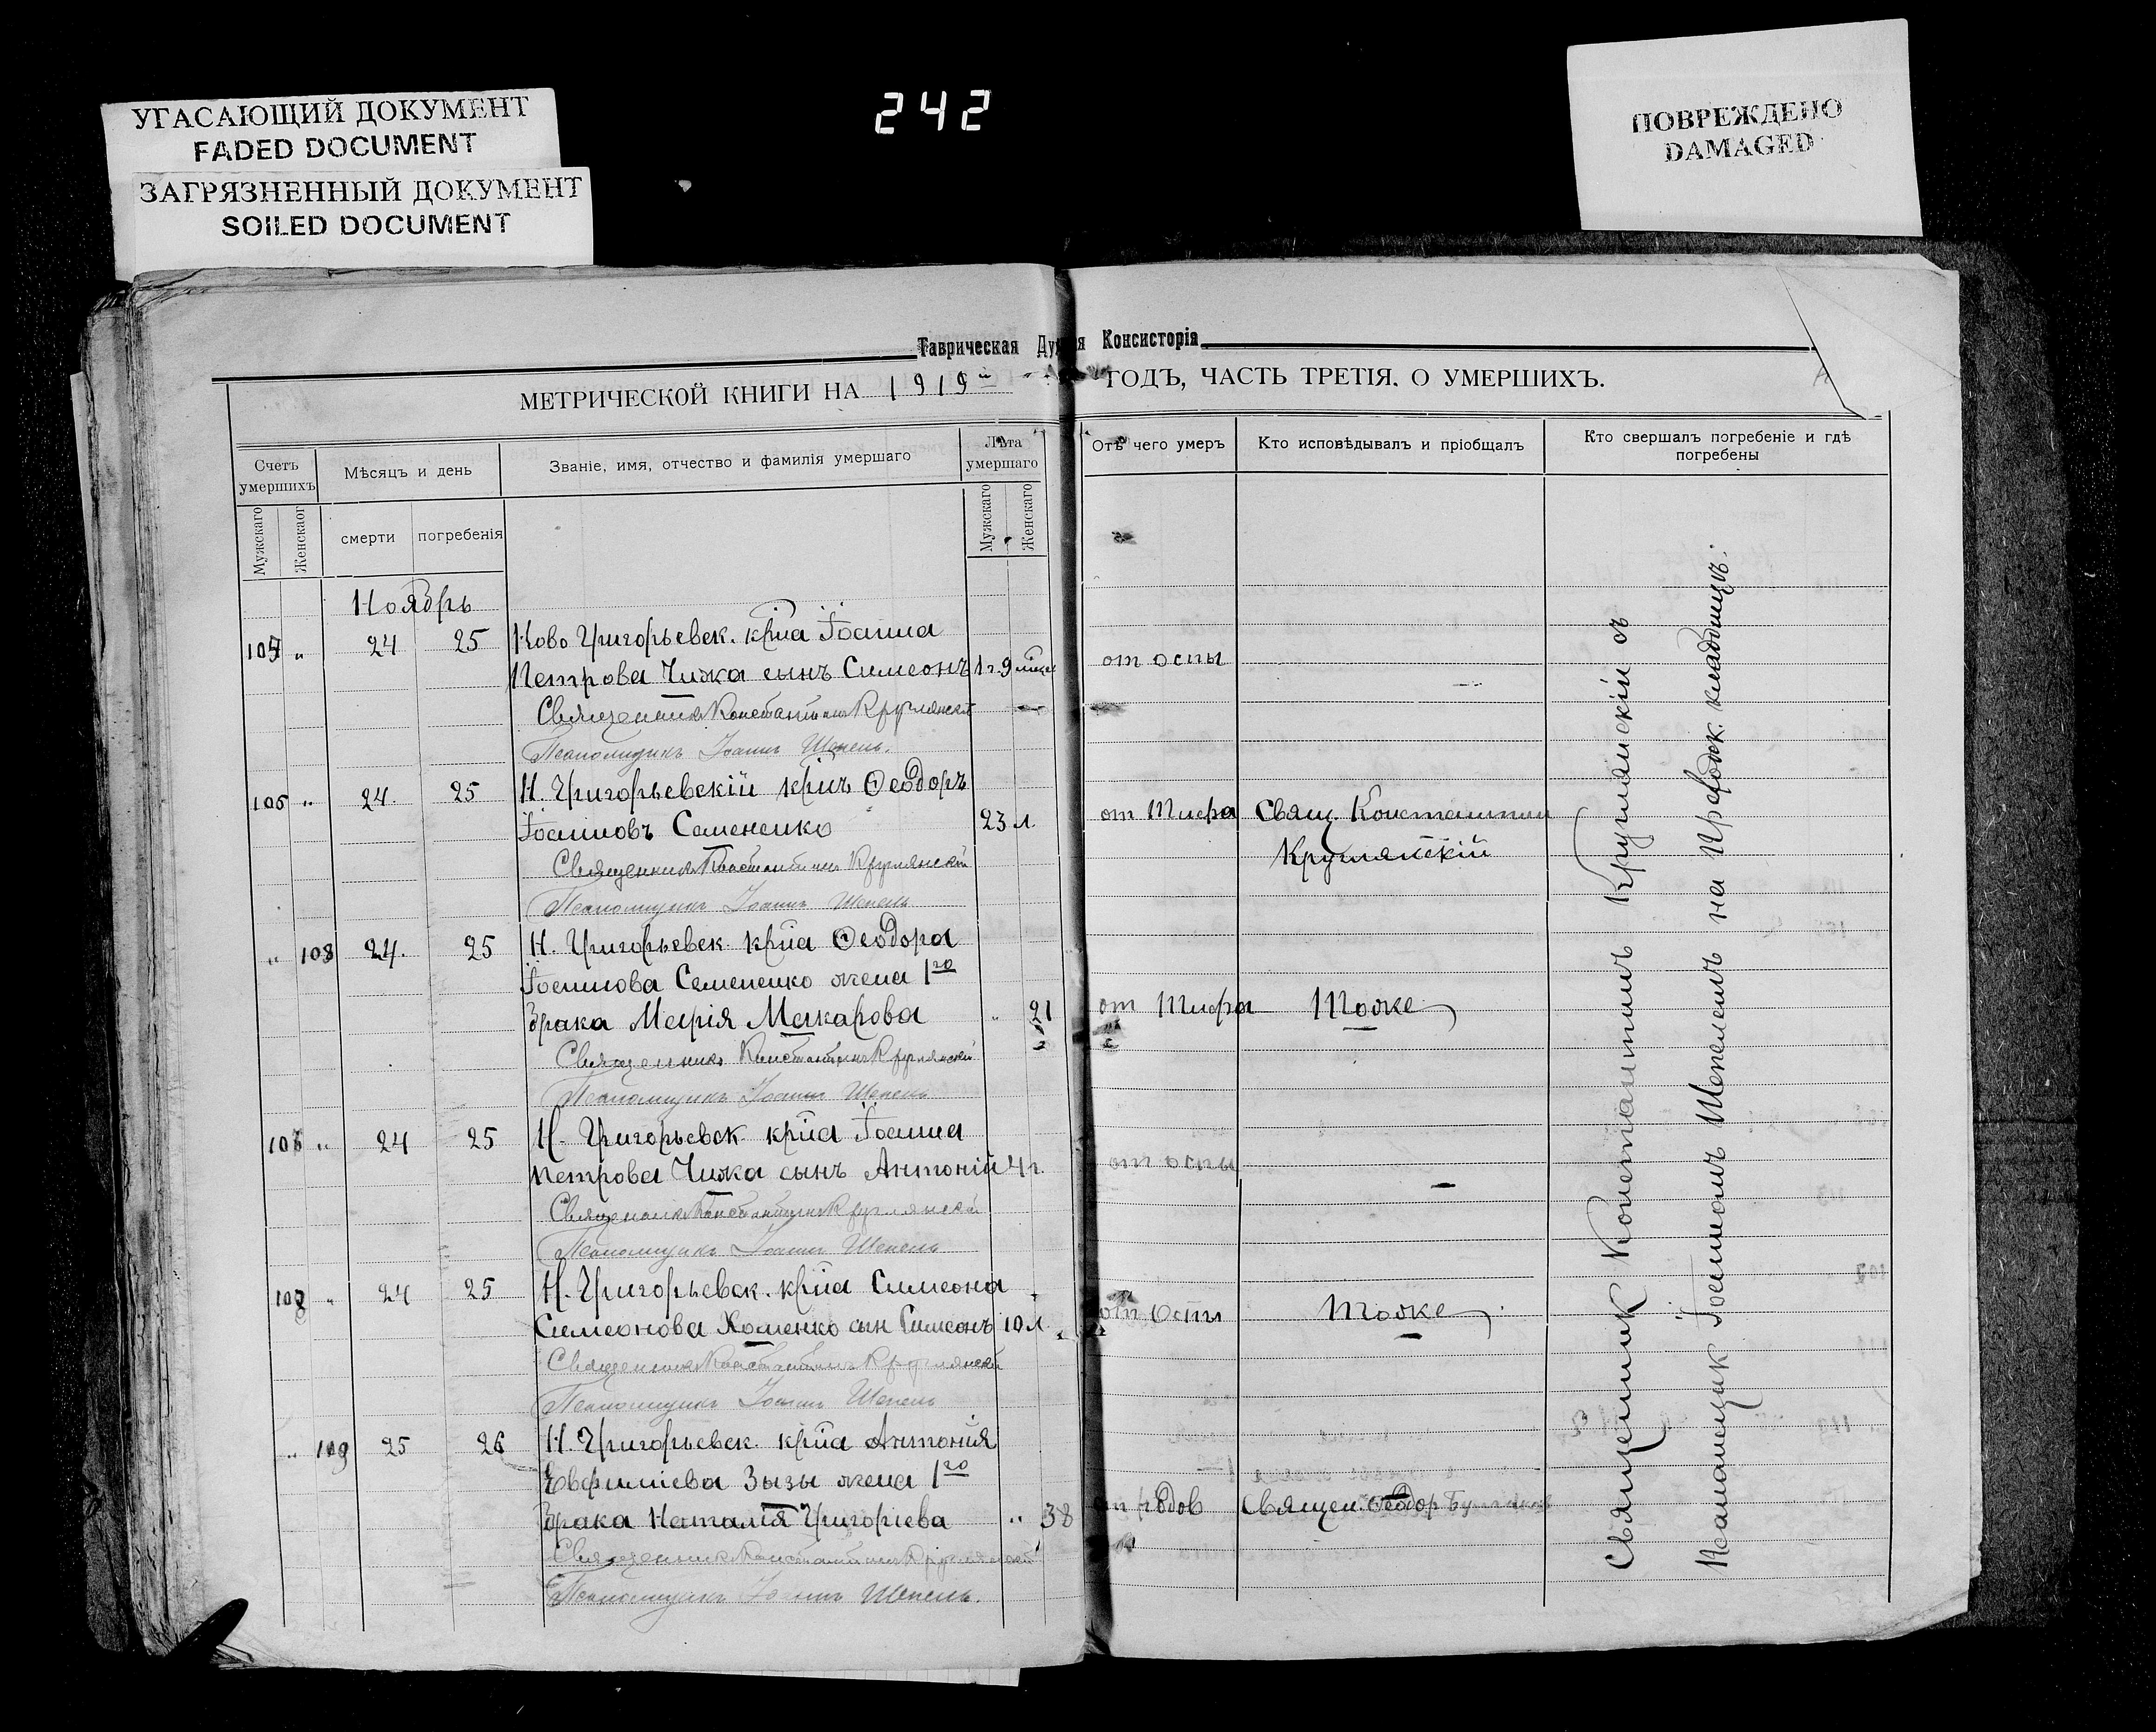 242
УГАСАЮЩИЙ ДОКУМЕНТ
FADED DOCUMENT
ЗАГРЯЗНЕННЫЙ ДОКУМЕНТ
SOILED DOCUMENT
ПОВРЕЖДЕНО
DAMAGED
Таврическая Ду я Консисторія
МЕТРИЧЕСКОЙ КНИГИ НА 1919 й ГОДЪ, ЧАСТЬ ТРЕТІЯ. О УМЕРШИХЪ.
Счетъ умершихъ
Мужскаго
Женскаог
Мѣсяцъ и день
смерти
погребенія
Званіе, имя, отчество и фамилія умершаго
Лѣта умершаго
Мужскаго
Женскаго
Отъ чего умеръ
Кто исповѣдывалъ и пріобщалъ
Кто свершалъ погребеніе и гдѣ погребены
Ноябрь
24 25 Ново Григорьевск. крна Іоанна
Петрова Чижа сынъ Симеонъ 1 г. 9 от оспы
Священникъ Константинъ Круглянскій
Псаломщикъ Іоаннъ Шепель.
105 " 24. 25 Н. Григорьевскій крнъ Ѳеодоръ
Іоанновъ Семененко 23 л. от Тифа Свящ. Константин
Круглянскій
Священникъ Константинъ Круглянскій
Псаломщикъ Іоаннъ Шепель
" 108 24. 25 Н. Григорьевск. крна Ѳеодора
Іоаннова Семененко жена 1го
брака Марія Макарова " 21 от Тифа Тоже
Священникъ Константинъ Круглянскій
Псаломщикъ Іоаннъ Шепель
106 " 24 25 Н. Григорьевск. крна Іоанна
Петрова Чижа сынъ Антоній 4 г. от оспы
Священникъ Константинъ Круглянскій
Псаломщикъ Іоаннъ Шепель
" 24 25 Н. Григорьевск. крна Симеона
Симеонова Хоменко сын Симеонъ 10 л. от Оспы Тоже
Священникъ Константинъ Круглянскій
Псаломщикъ Іоаннъ Шепель
" 109 25 26 Н. Григорьевск. крна Антонія
Евфиміева Зызы жена 1го
брака Наталія Григоріева " 38 от родов Священ. Ѳеодор
Священникъ Константинъ Круглянскій
Псаломщикъ Іоаннъ Шепель.
Священник Константинъ Круглянскій съ
Псаломщик Іоанномъ Шепелемъ на Приходск. кладбищѣ.